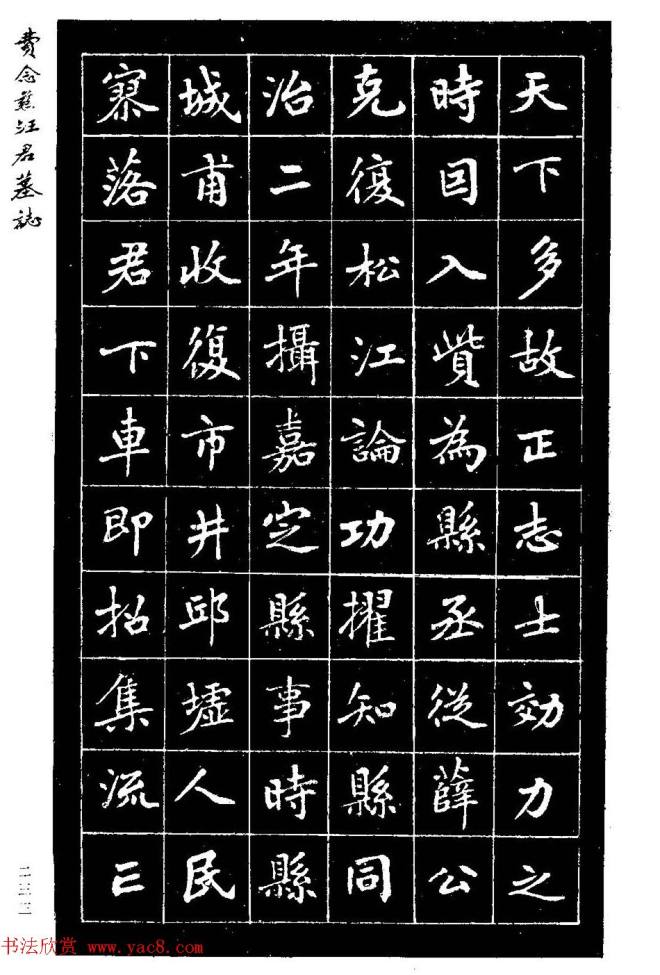 天下多故正志士効力之
時因入貲為縣丞從薛公
克復松江論功擢知縣同
治二年攝嘉定縣事時縣
城甫收復市井邱墟人民
寮落君下車即招集流亡
費念慈汪君墓誌
二三三
书法欣赏 www.yac8.com